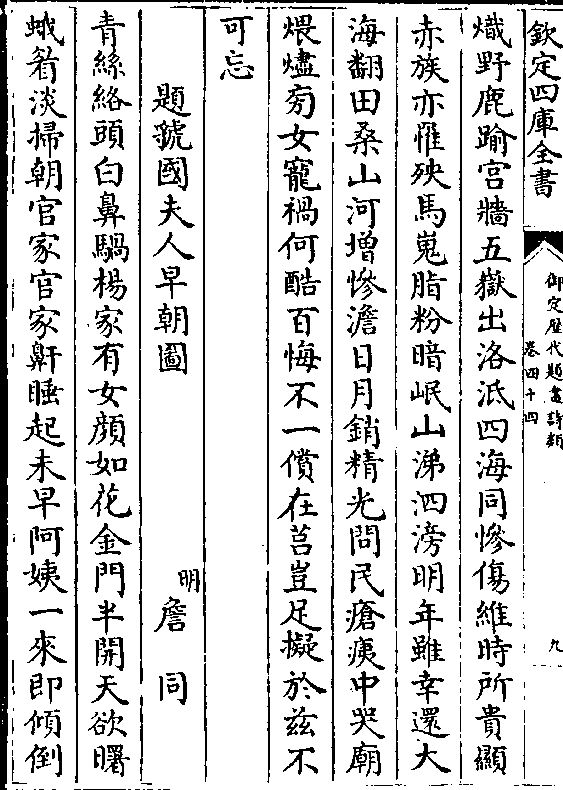 欽定四庫全書
御定歴代題畫詩類
卷四十四
九
熾野鹿踰宫牆五嶽出洛汦四海同慘傷維時所貴顯
赤族亦惟殃馬嵬脂粉暗岷山涕泗滂明年雖幸還大
海翻田桑山河增慘澹日月銷精光問民瘡痍中哭廟
煨燼旁女寵禍何酷百悔不一償在莒豈足擬於兹不
可忘
題虢國夫人早朝圖
明 詹同
青絲絡頭白鼻騧楊家有女顔如花金門半開天欲曙
蛾眉淡掃朝官家官家鼾睡起未早阿姨一來即傾倒